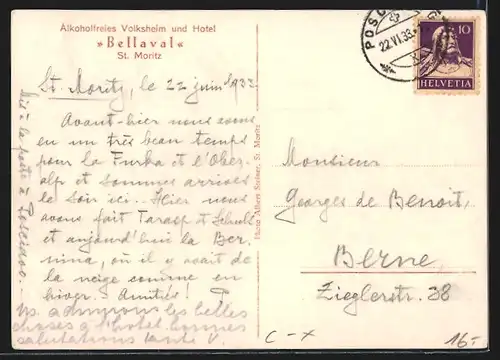 Alkoholfreies Volksheim und Hotel
»Bellaval«
St. Moritz
St. Moritz, le 22 juin 1933.
Avant-hier nous avons
eu un très beau temps
pour la Furka et l'Ober-
alp et sommes arrivés
le soir ici. Hier nous
avons fait Tarasp et Schuls
et aujourd'hui la Ber-
nina, où il y avait de
la neige comme en
hiver. Amitiés!
admirons les belles
choses à l'hôtel. bonnes
salutations tante V.
Mis à la poste à Poschiavo.
Photo Albert Steiner, St. Moritz
22.VI.33
10
HELVETIA
Monsieur
Georges de Benoit,
Berne,
Zieglerstr. 38
C-X
16.-